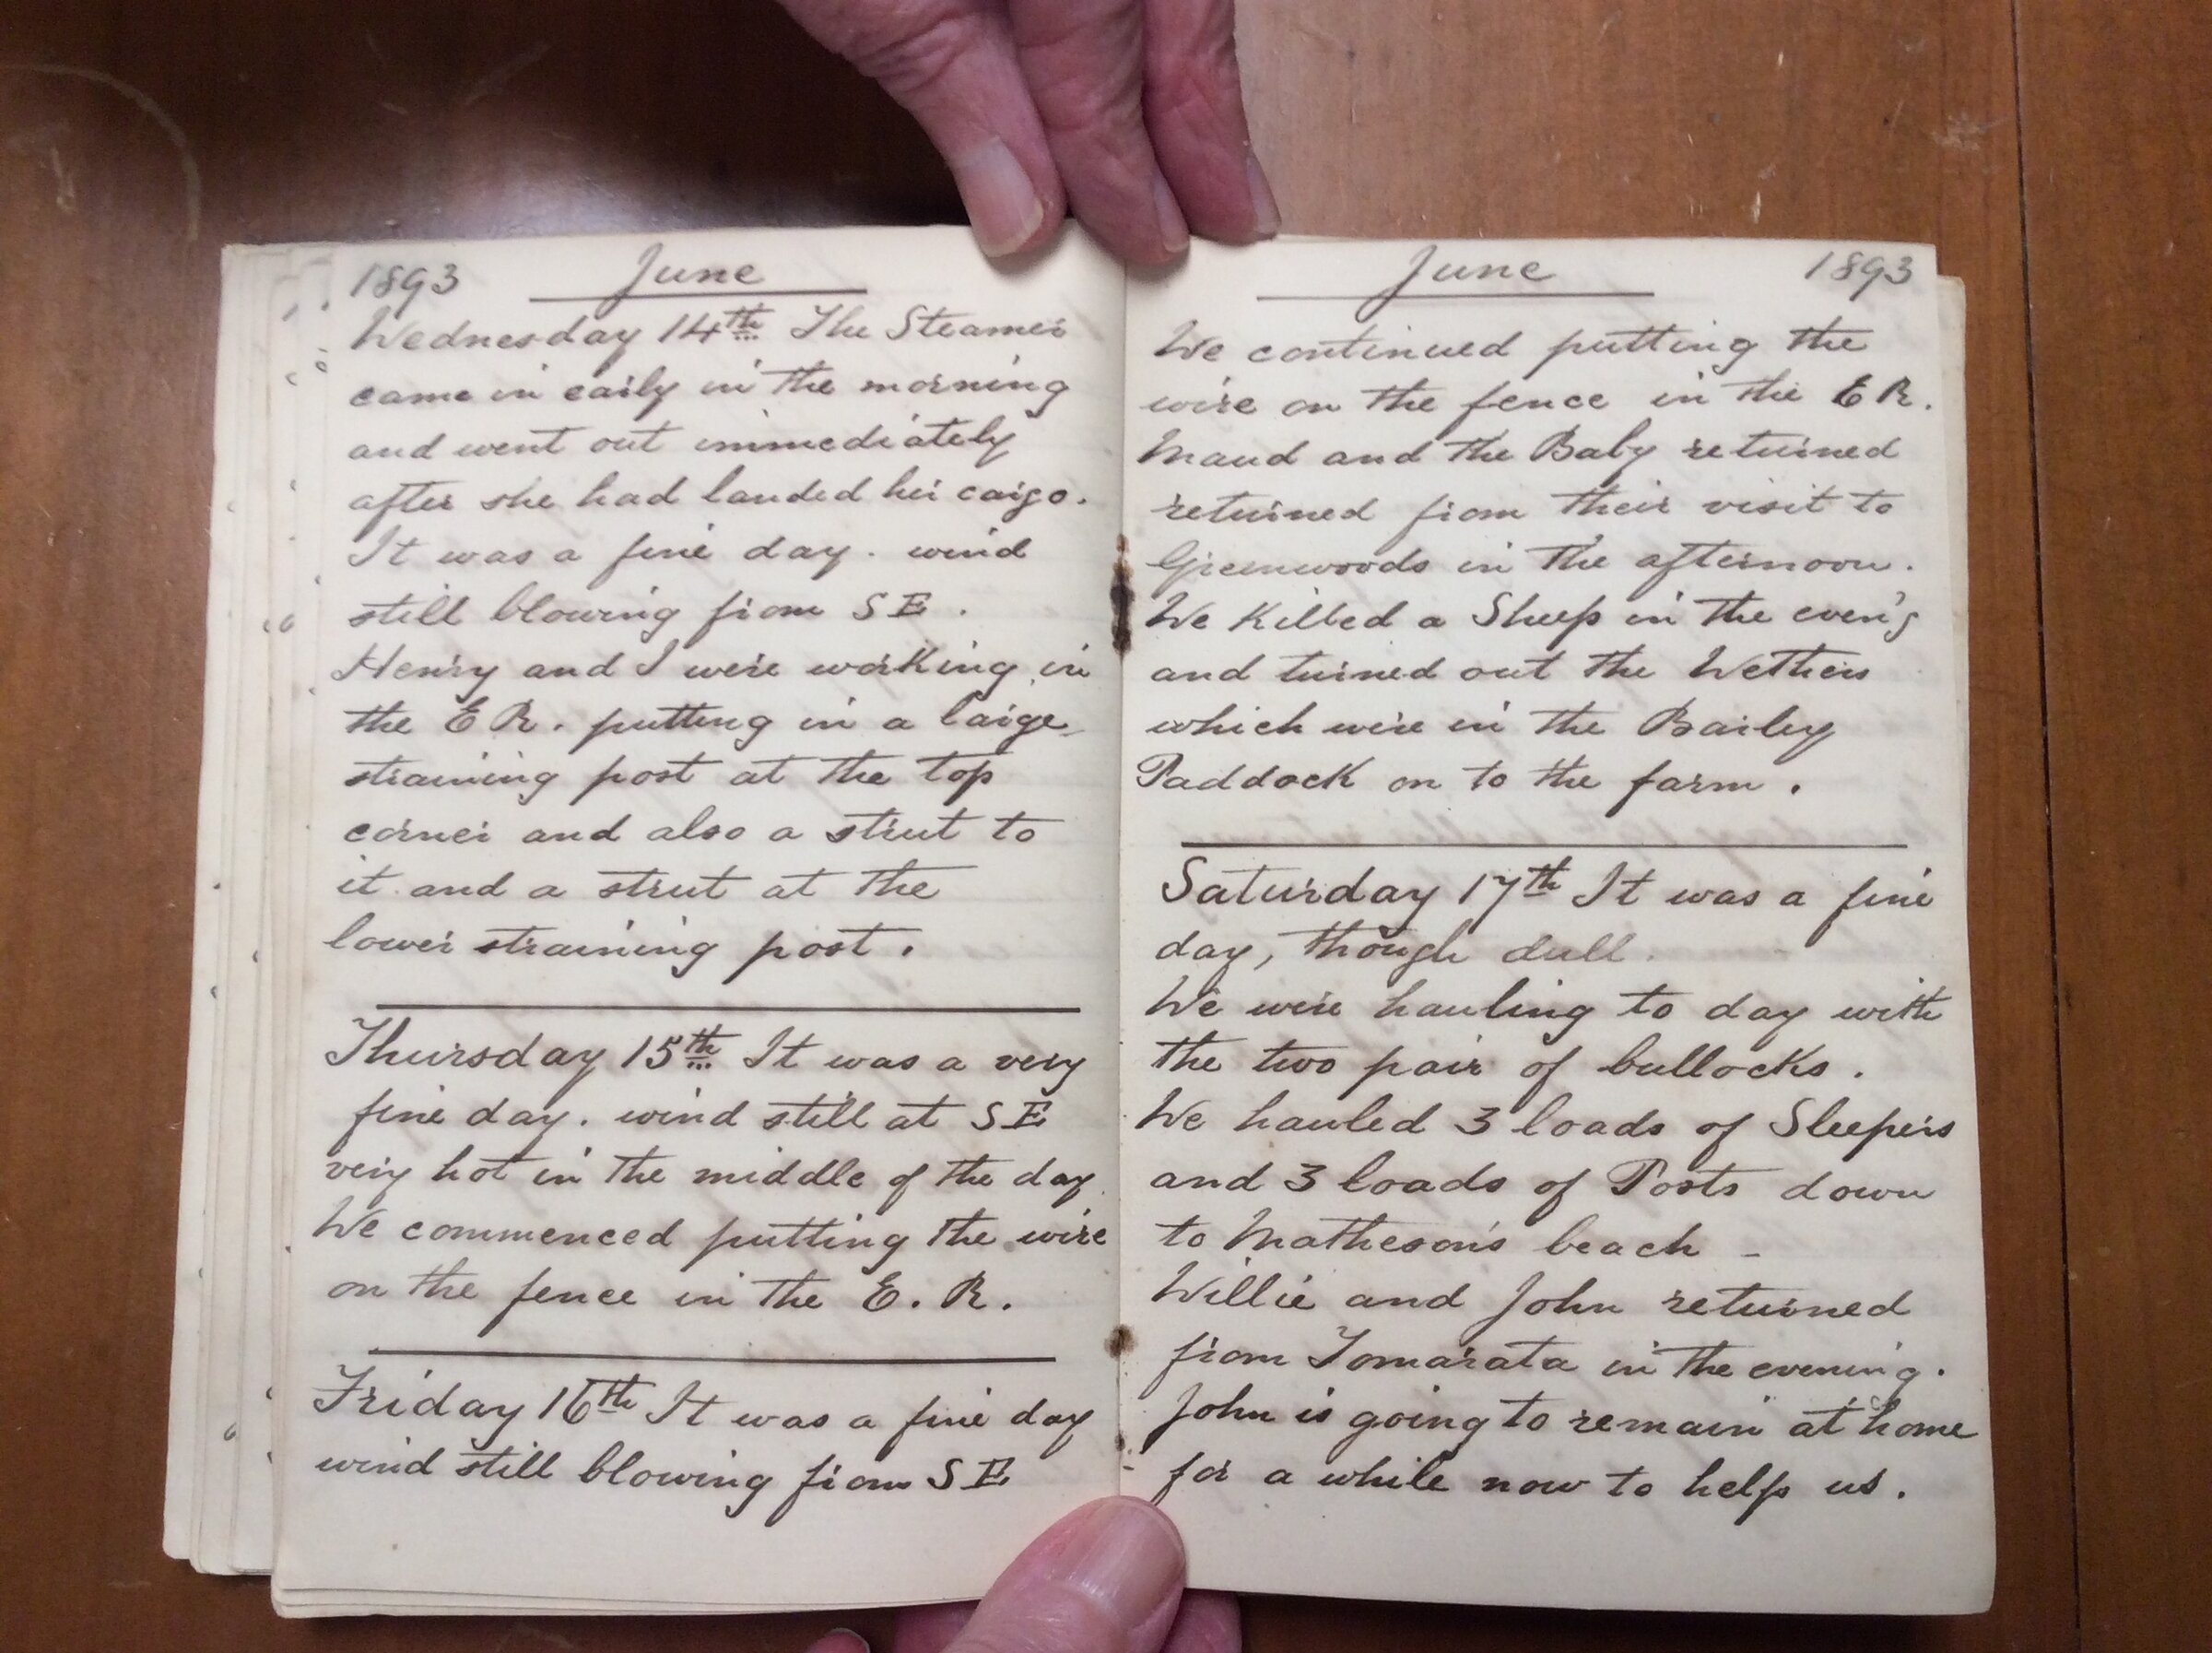 1893 June
Wednesday 14th The Steamer
came in early in the morning
and went out immediately
after she had landed her cargo.
It was a fine day. wind
still blowing from S E.
Henry and I were working in
the E R. putting in a large
straining post at the top
corner and also a strut to
it and a strut at the
lower straining post.
Thursday 15th It was a very
fine day. wind still at S E
very hot in the middle of the day.
We commenced putting the wire
on the fence in the E. R.
Friday 16th It was a fine day
wind still blowing from S E
June 1893
We continued putting the
wire on the fence in the E R.
Maud and the Baby returned
returned from their visit to
Greenwoods in the afternoon.
We killed a Sheep in the even'g
and turned out the Wethers
which were in the Bailey
Paddock on to the farm.
Saturday 17th It was a fine
day, though dull.
We were hauling to day with
the two pair of bullocks.
We hauled 3 loads of Sleepers
and 3 loads of Posts down
to Matheson's beach -
Willie and John returned
from Tomarata in the evening.
John is going to remain at home
for a while now to help us.